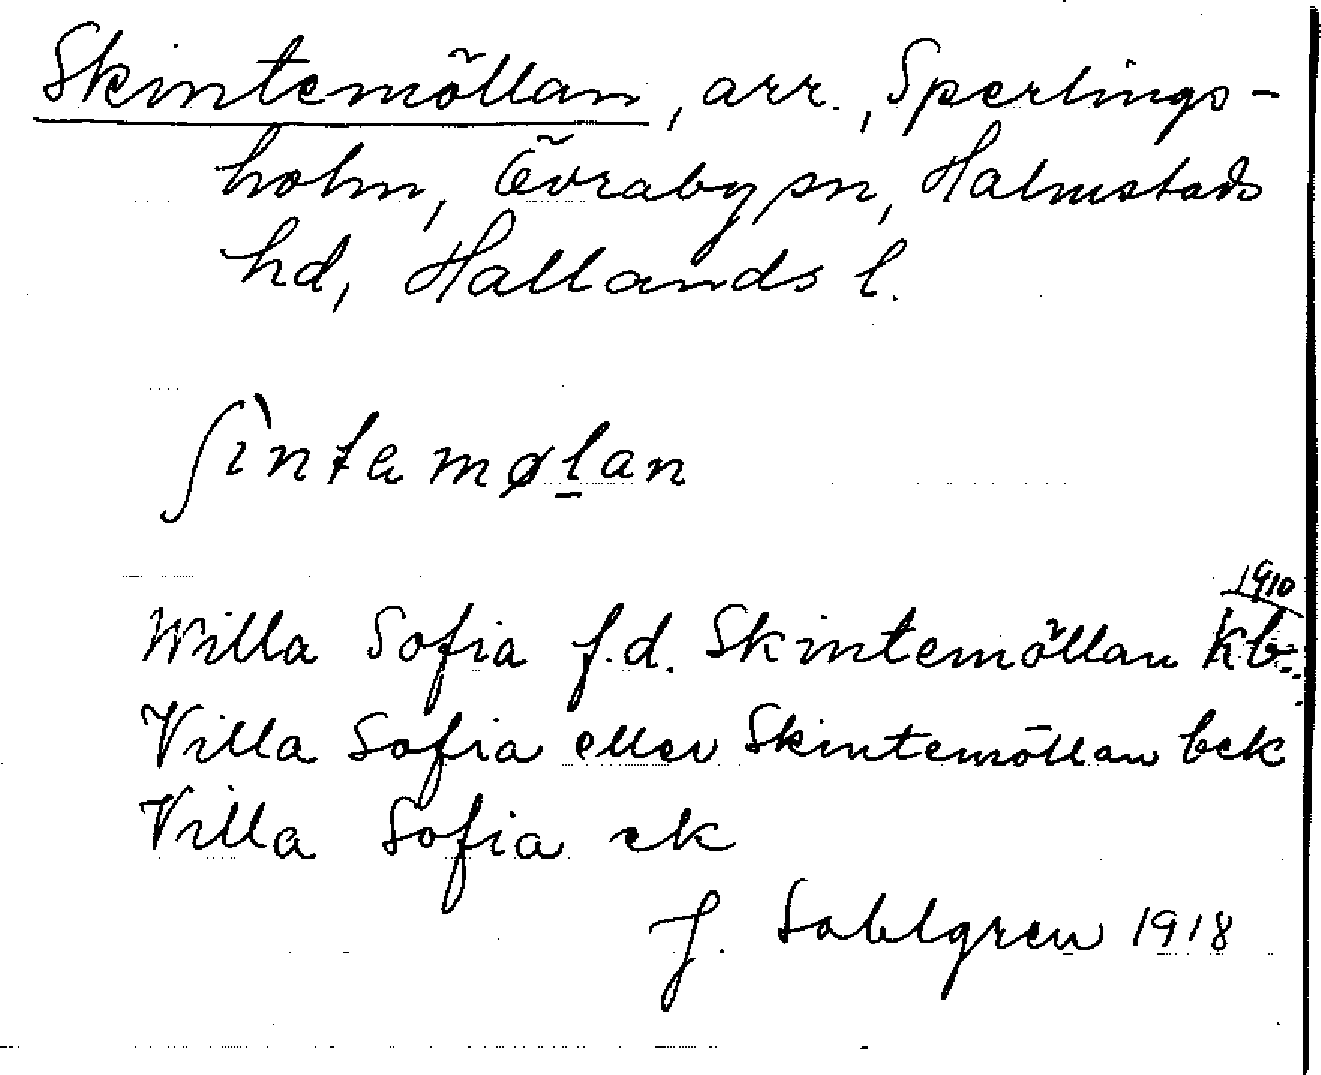 Skintemöllan, arr., Sperlings-
holm, Övraby sn, Halmstads
hd, Hallands l.
ʃìntamøl̠an
1910
Willa Sofia f.d. Skintemöllan kb
Villa Sofia eller Skintemöllan bek
Villa Sofia ek
J. Sahlgren 1918